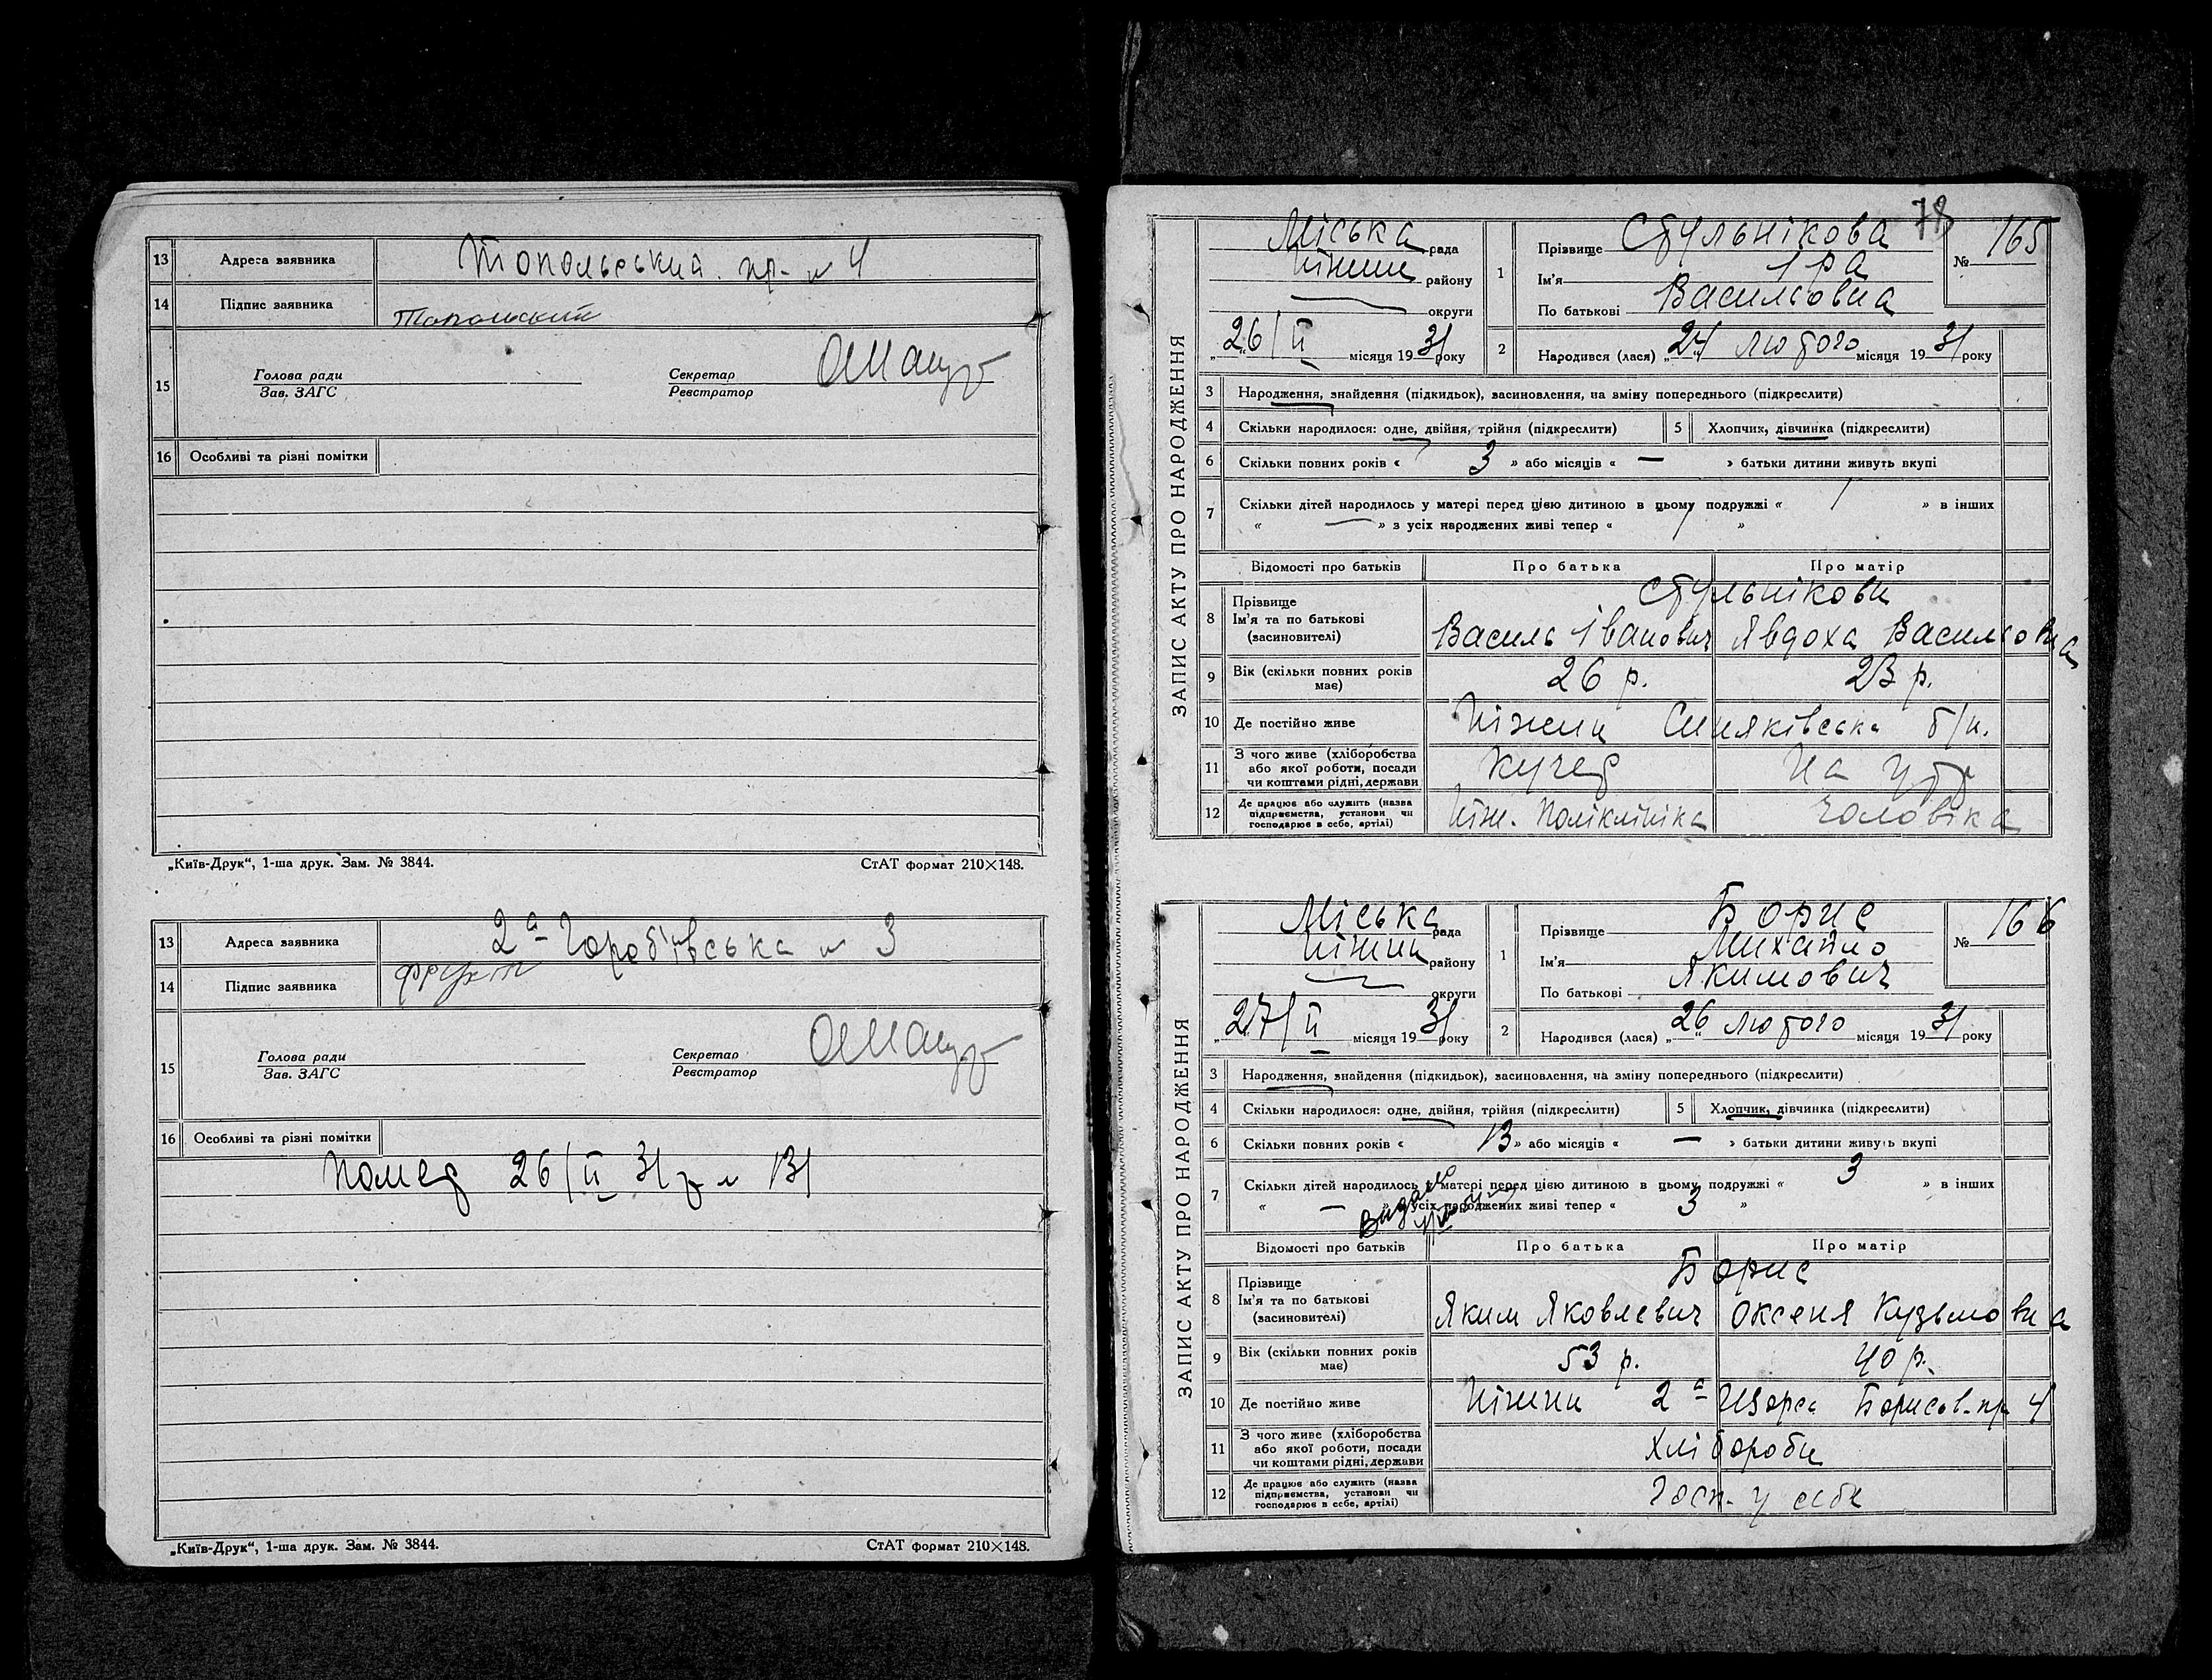 13 Адреса заявника Топольський пр. № 4
14 Підпис заявника
15 Голова ради
Зав. ЗАГС
Секретар
Реєстратор
16 Особливі та різні помітки
„Київ-Друк“, 1-ша друк. Зам. № 3844. СтАТ формат 210×148.
13 Адреса заявника 2а Горобіївська № 3
14 Підпис заявника
15 Голова ради
Зав. ЗАГС
Секретар
Реєстратор
16 Особливі та різні помітки
Помер 26/II 31 р № 131
„Київ-Друк“, 1-ша друк. Зам. № 3844. СтАТ формат 210×148.
78
ЗАПИС АКТУ ПРО НАРОДЖЕННЯ
Міська рада
Ніжин району
округи
„26/II місяця 1931 року
1 Прізвище Стульнікова
Ім'я Іра
По батькові Васильовна
№ 165
2 Народився (лася) „24 лютого місяця 1931 року
3 Народження, знайдення (підкидьок), засиновлення, на зміну попереднього (підкреслити)
4 Скільки народилося: одне, двійня, трійня (підкреслити) 5 Хлопчик, дівчинка (підкреслити)
6 Скільки повних років « 3 » або місяців « — » батьки дитини живуть вкупі
7 Скільки дітей народилось у матері перед цією дитиною в цьому подружжі « 1 » в інших
« — » з усіх народжених живі тепер « 1 »
Відомості про батьків Про батька Про матір
8 Прізвище
Ім'я та по батькові
(засиновителі)
Стульнікови
Василь Іванович Явдоха Васильовна
9 Вік (скільки повних років має) 26 р. 23 р.
10 Де постійно живе Ніжин Синяківська б/н.
11 З чого живе (хліборобства або якої роботи, посади чи коштами рідні, держави Кучер На утр
12 Де працює або служить (назва підприємства, установи чи господарює в себе, артілі) Ніж. Поліклініка чоловіка
ЗАПИС АКТУ ПРО НАРОДЖЕННЯ
Міська рада
Ніжин району
округи
„27/II місяця 1931 року
1 Прізвище Борис
Ім'я Михайло
По батькові Якимович
№ 166
2 Народився (лася) „26 лютого місяця 1931 року
3 Народження, знайдення (підкидьок), засиновлення, на зміну попереднього (підкреслити)
4 Скільки народилося: одне, двійня, трійня (підкреслити) 5 Хлопчик, дівчинка (підкреслити)
6 Скільки повних років « 13 » або місяців « — » батьки дитини живуть вкупі
7 Скільки дітей народилось у матері перед цією дитиною в цьому подружжі « 3 » в інших
« — » усіх народжених живі тепер « 3 »
Відомості про батьків Про батька Про матір
8 Прізвище
Ім'я та по батькові
(засиновителі)
Борис
Яким Яковлевич Оксеня Кузьмовна
9 Вік (скільки повних років має) 53 р. 40 р.
10 Де постійно живе Ніжин 2а Щорса Борисов. пр 4
11 З чого живе (хліборобства або якої роботи, посади чи коштами рідні, держави Хлібороби
12 Де працює або служить (назва підприємства, установи чи господарює в себе, артілі) Госп. у себе